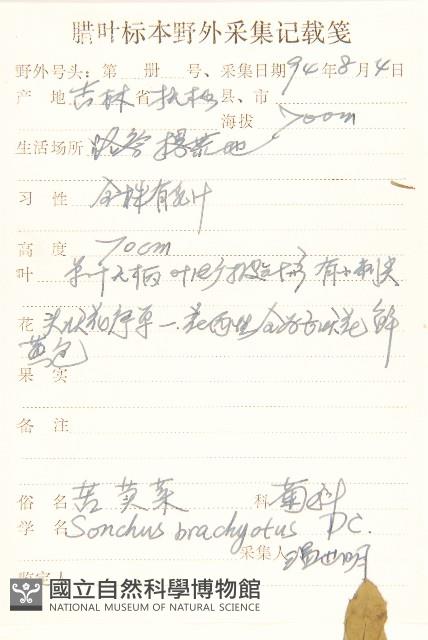 腊叶标本野外采集记载笺
野外号头: 第 册 号、采集日期 94年8月4日
产 地 吉林省 县、市
海拔 700m
生活场所 路旁 撂荒地
习 性 全株有乳汁
高 度 70cm
叶 单叶无柄 叶 有小刺尖
花 头状花序单一. 花两性 全为舌状花 鲜
黄色
果 实
备 注
俗 名 苦荬菜 科 菊科
学 名 Sonchus brachyotus DC.
采集人 温世明
鉴定人
國立自然科學博物館
NATIONAL MUSEUM OF NATURAL SCIENCE